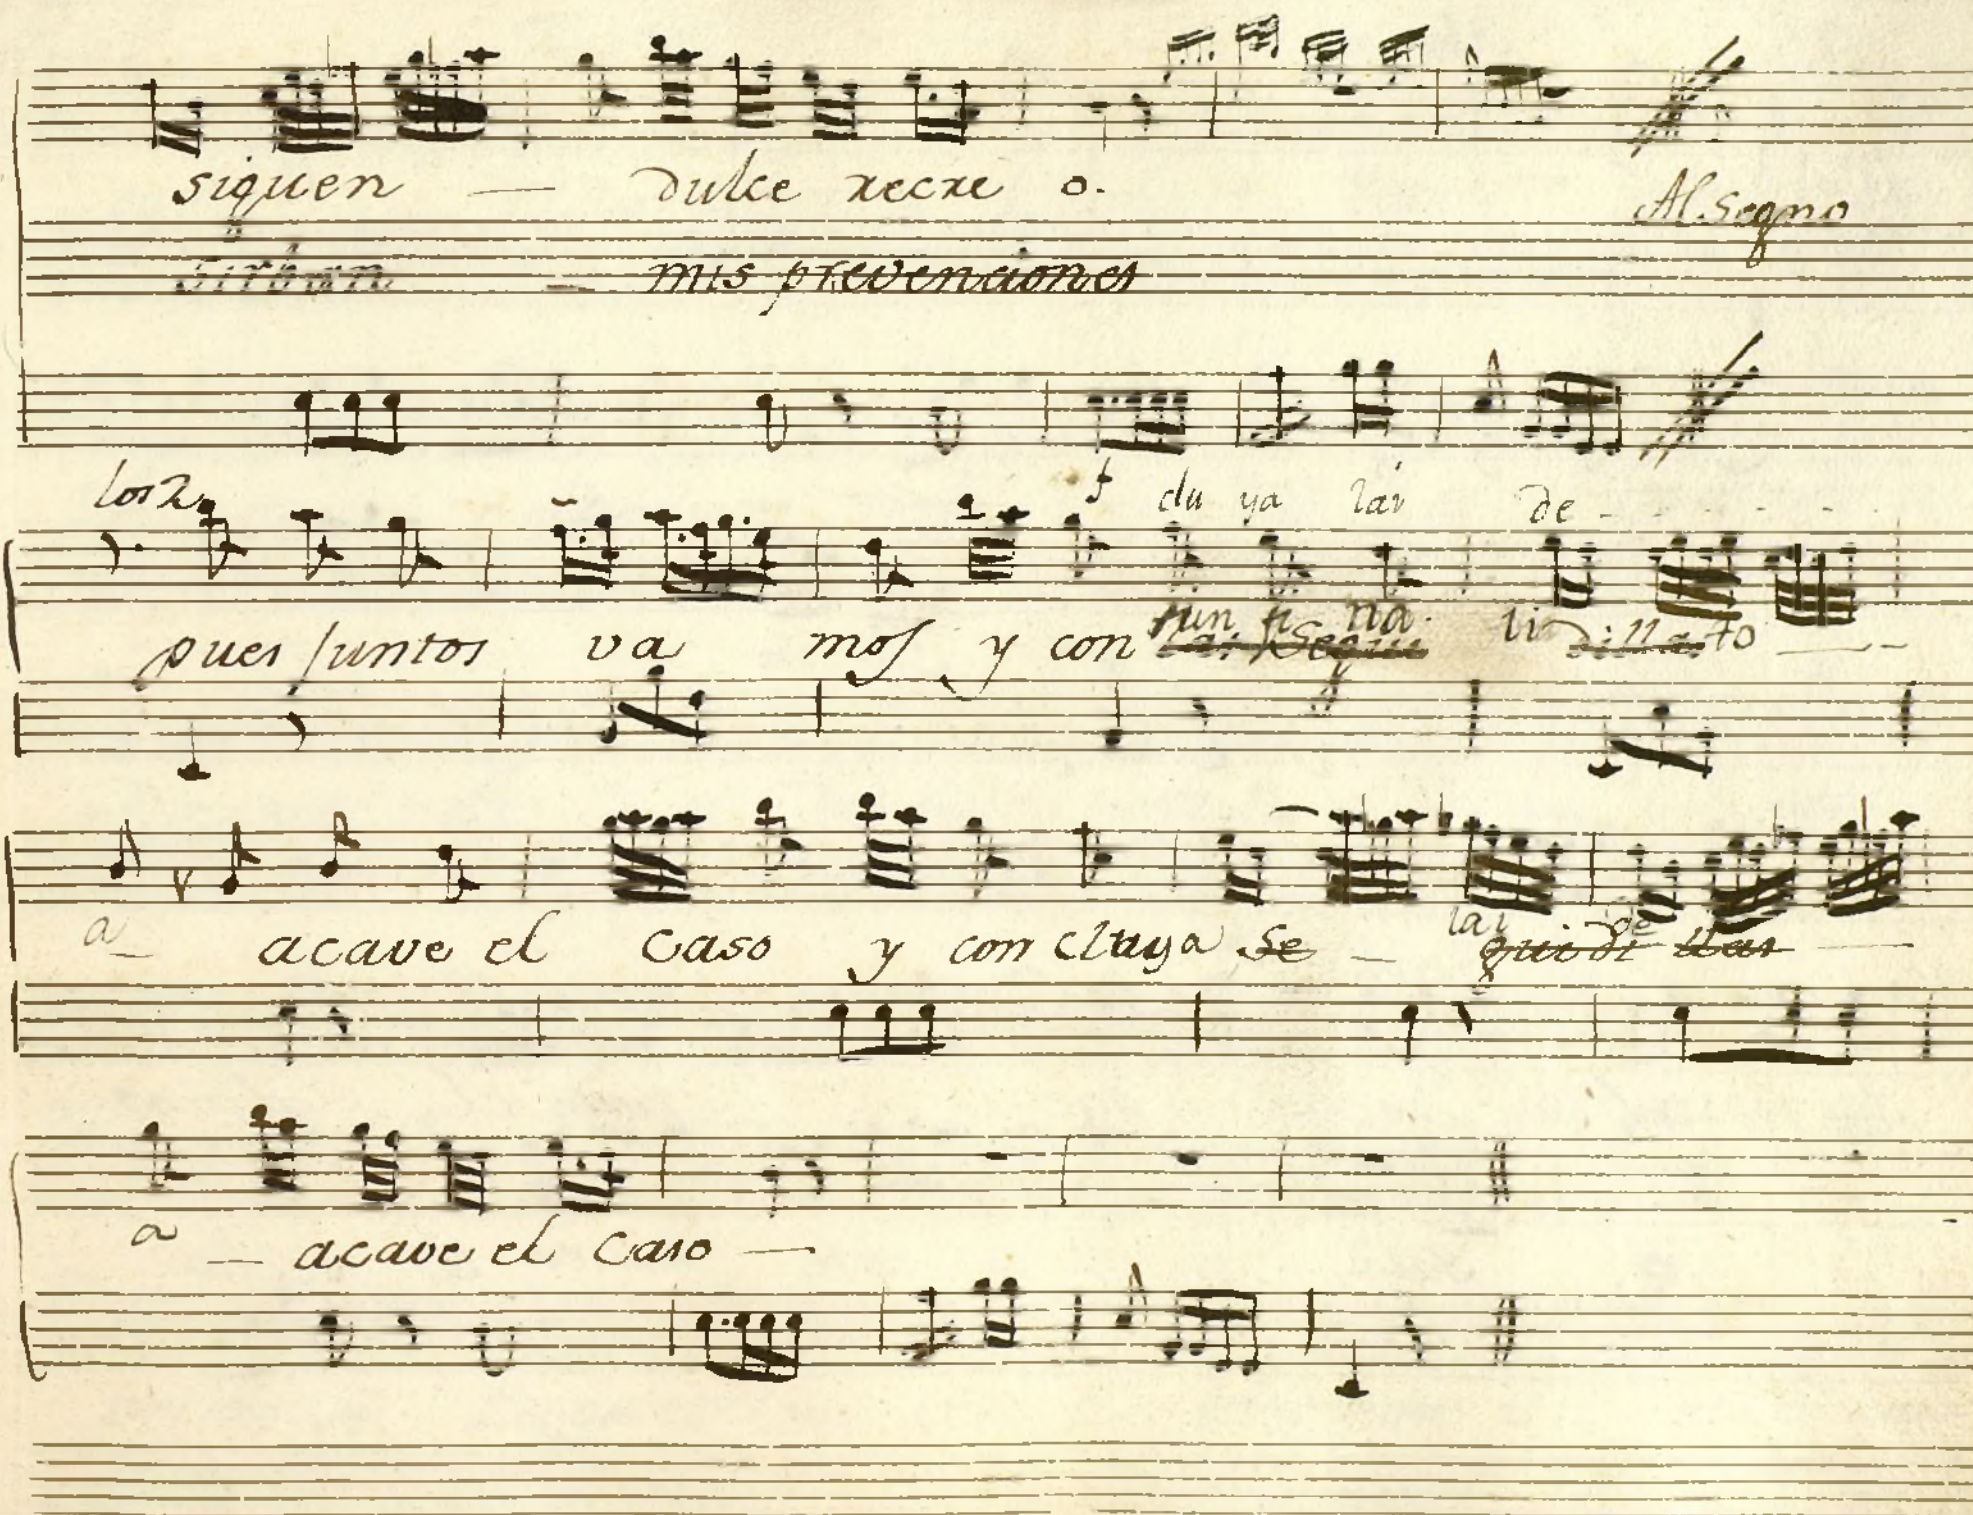 siguen — dulce recreo.
Al Segno
Sirban — mis prevenciones
los 2
f clu ya las de
pues juntos va mos y con
las Segui dillas to
a acave el caso y con cluya se — guidi llas
las de
a — acave el caso —